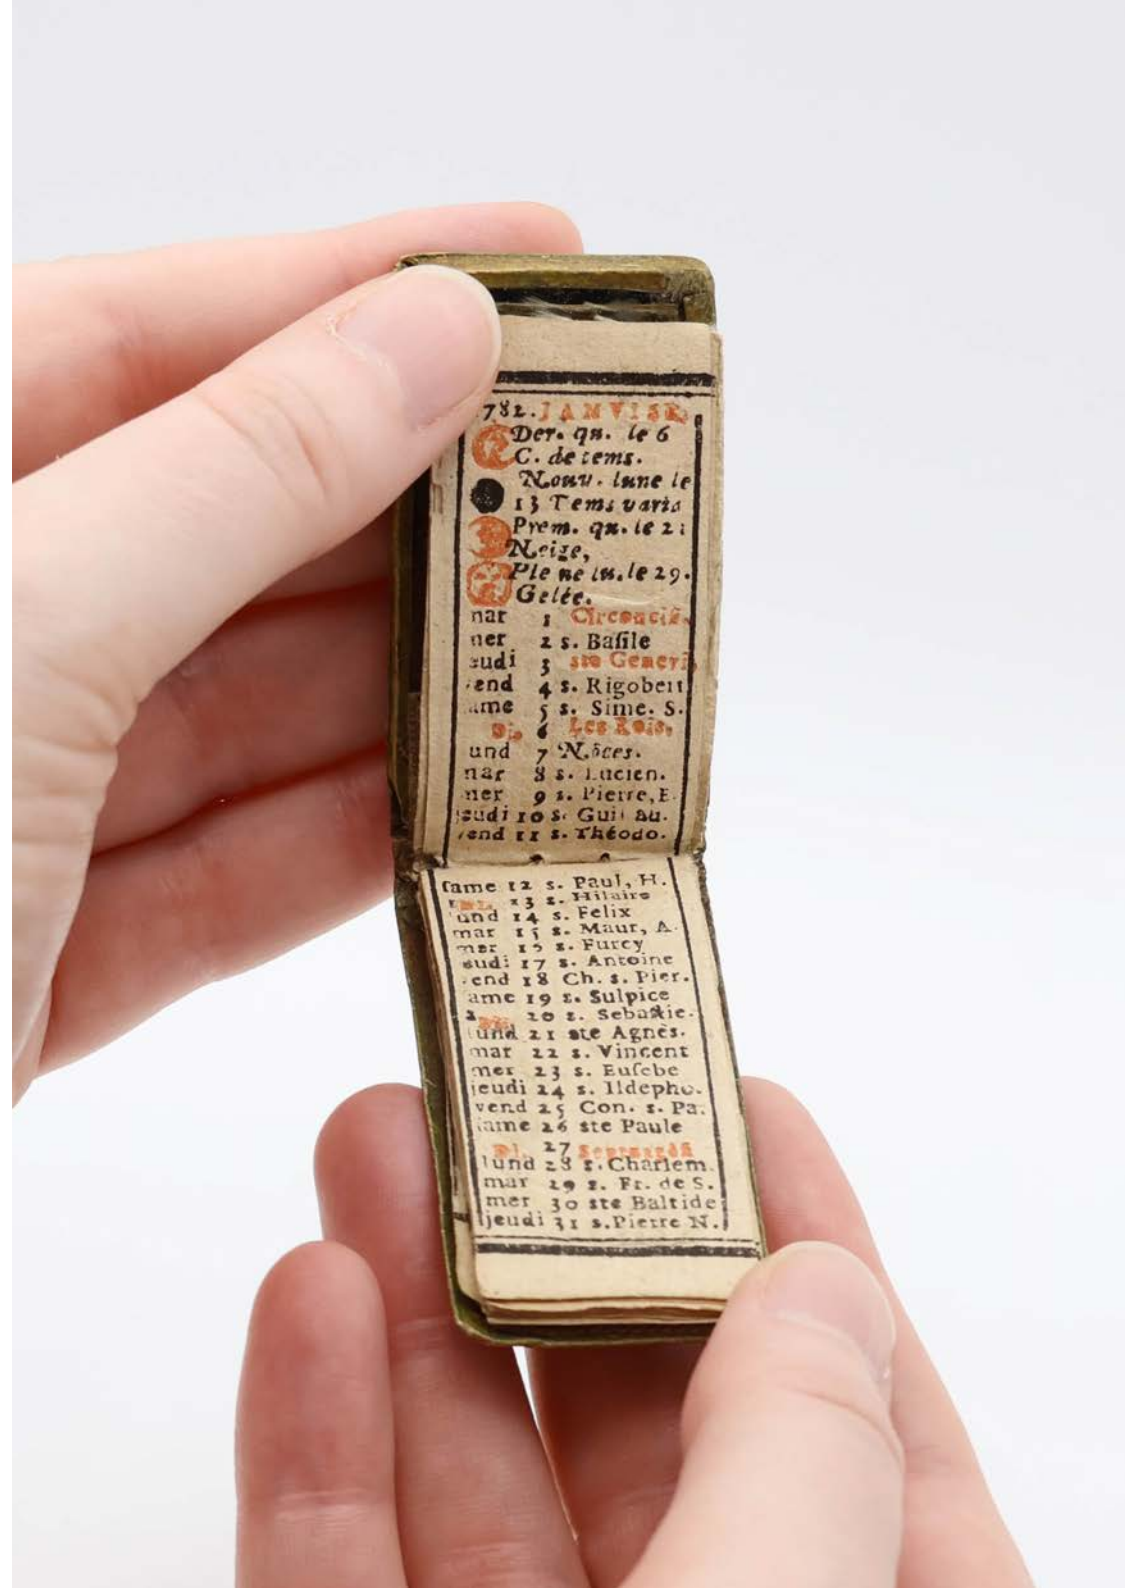 782. JANVIER.
Der. qu. le 6
C. de tems.
Nouv. lune le
13 Tems varia
Prem. qu. le 21
Neige,
Pleine lu. le 29.
Gelée.
mar 1 Circoncis.
mer 2 s. Basile
jeudi 3 ste Genevi.
vend 4 s. Rigobert
same 5 s. Sime. S.
Di. 6 Les Rois,
lund 7 Nôces.
mar 8 s. Lucien.
mer 9 s. Pierre, E.
jeudi 10 s. Guillau.
vend 11 s. Théodo.
same 12 s. Paul, H.
13 s. Hilaire
lund 14 s. Felix
mar 15 s. Maur, A.
mer 15 s. Furcy
jeudi 17 s. Antoine
vend 18 Ch. s. Pier.
same 19 s. Sulpice
20 s. Sebastie.
lund 21 ste Agnès.
mar 22 s. Vincent
mer 23 s. Eusebe
jeudi 24 s. Ildepho.
vend 25 Con. s. Pa.
same 26 ste Paule
Di. 27 Septuagés
lund 28 s. Charlem.
mar 29 s. Fr. de S.
mer 30 ste Baltide
jeudi 31 s. Pierre N.